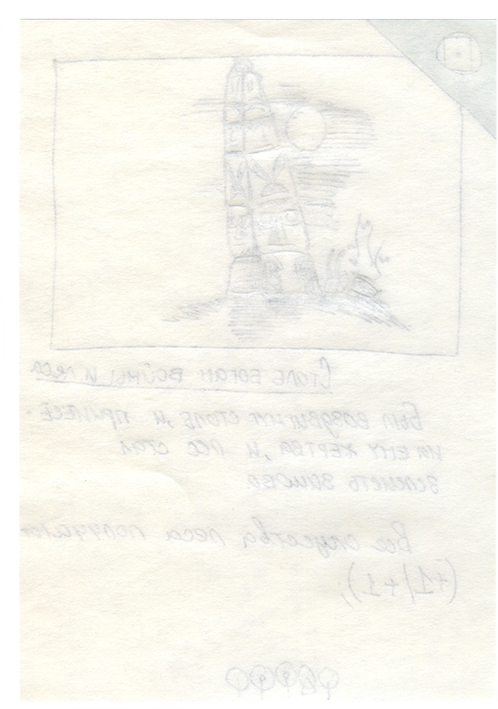 Столб богам войны и леса
Был воздвигнут столб, и принесе-
на ему жертва, и лес стал

Все существа леса получают
(+1/+1),